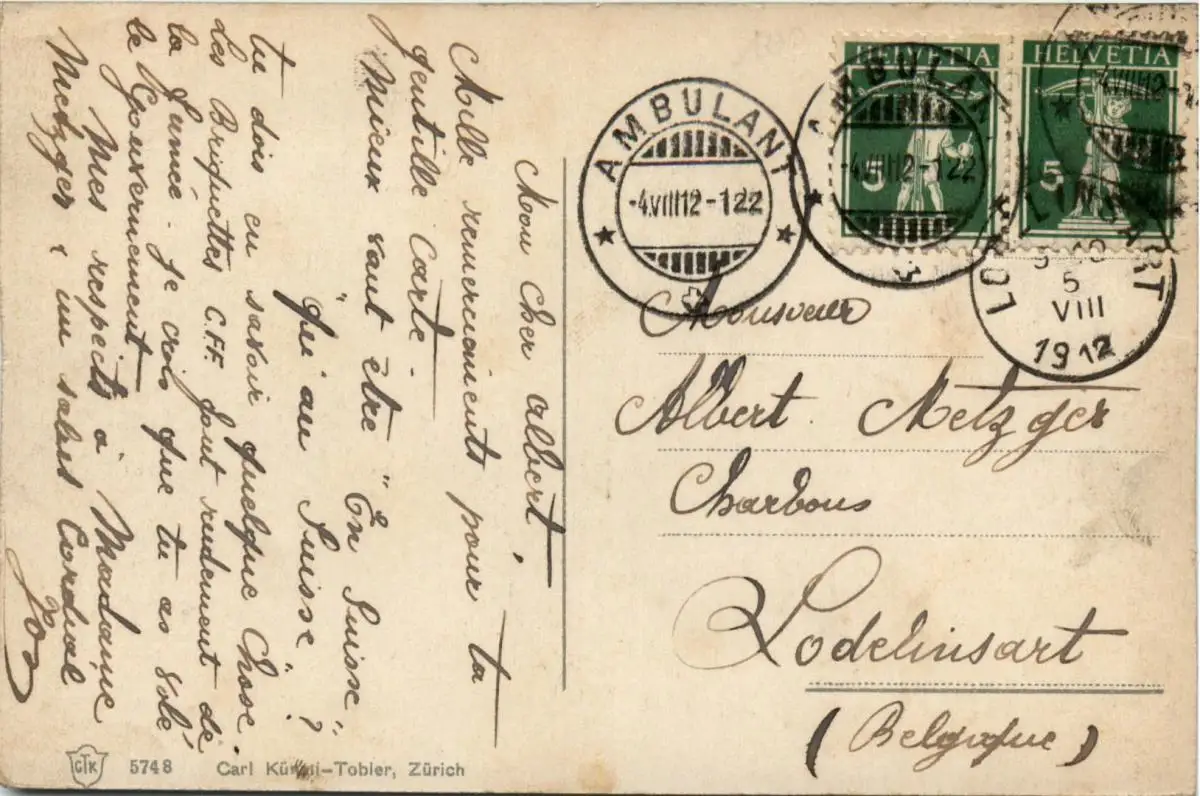 Mon cher Albert,
Mille remerciements pour ta
gentille Carte.
Mieux vaut être "En Suisse"
"qu'au Suisse"?
tu dois en savoir quelque Chose.
Les Briquettes C.F.F. font rudement de
la fumée. Je crois que tu as volé
le Gouvernement
Mes respects à Madame
Metzger & un salut Cordial
AMBULANT
-4.VIII12-122
AMBULANT
-4.VIII12-122
-4.VIII12-
HELVETIA
5
HELVETIA
5
5
VIII
1912
Monsieur
Albert Metzger
Charbons
Lodelinsart
(Belgique)
GTK 5748 Carl Künzli-Tobler, Zürich